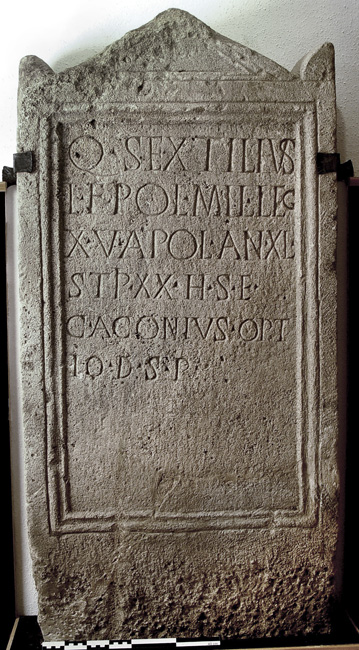 Q·SEXTILIVS
L·F·POL·MIL·LEG
X·V·APOL·ANXL
STP·XX·H·S·E·
C·ACONIVS·OPT
IO·D·S·P